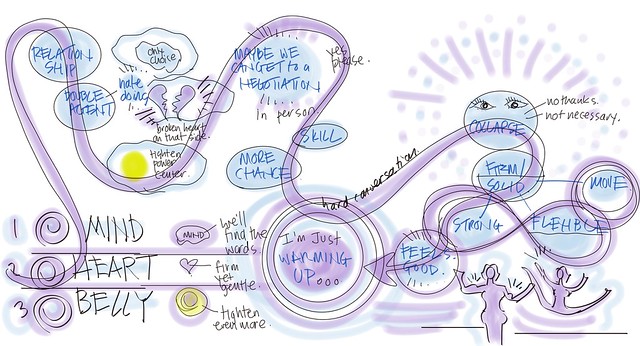 RELATION
SHIP
DOUBLE-
AGENT
only
choice
hate
doing
broken heart
on that side.
tighten
power
center.
MAYBE WE
CAN GET to a
NEGOTIATION
In person
yes
please.
SKILL
MORE
CHANCE
hard conversation
COLLAPSE
no thanks.
not necessary.
FIRM/
SOLID
MOVE
STRONG
FLEXIBLE
FEELS
GOOD.
I'm JUST
WARMING
UP...
1 MIND
MIND
We'll
find the
words.
2 HEART
firm
yet
gentle.
3 BELLY
tighten
even more.